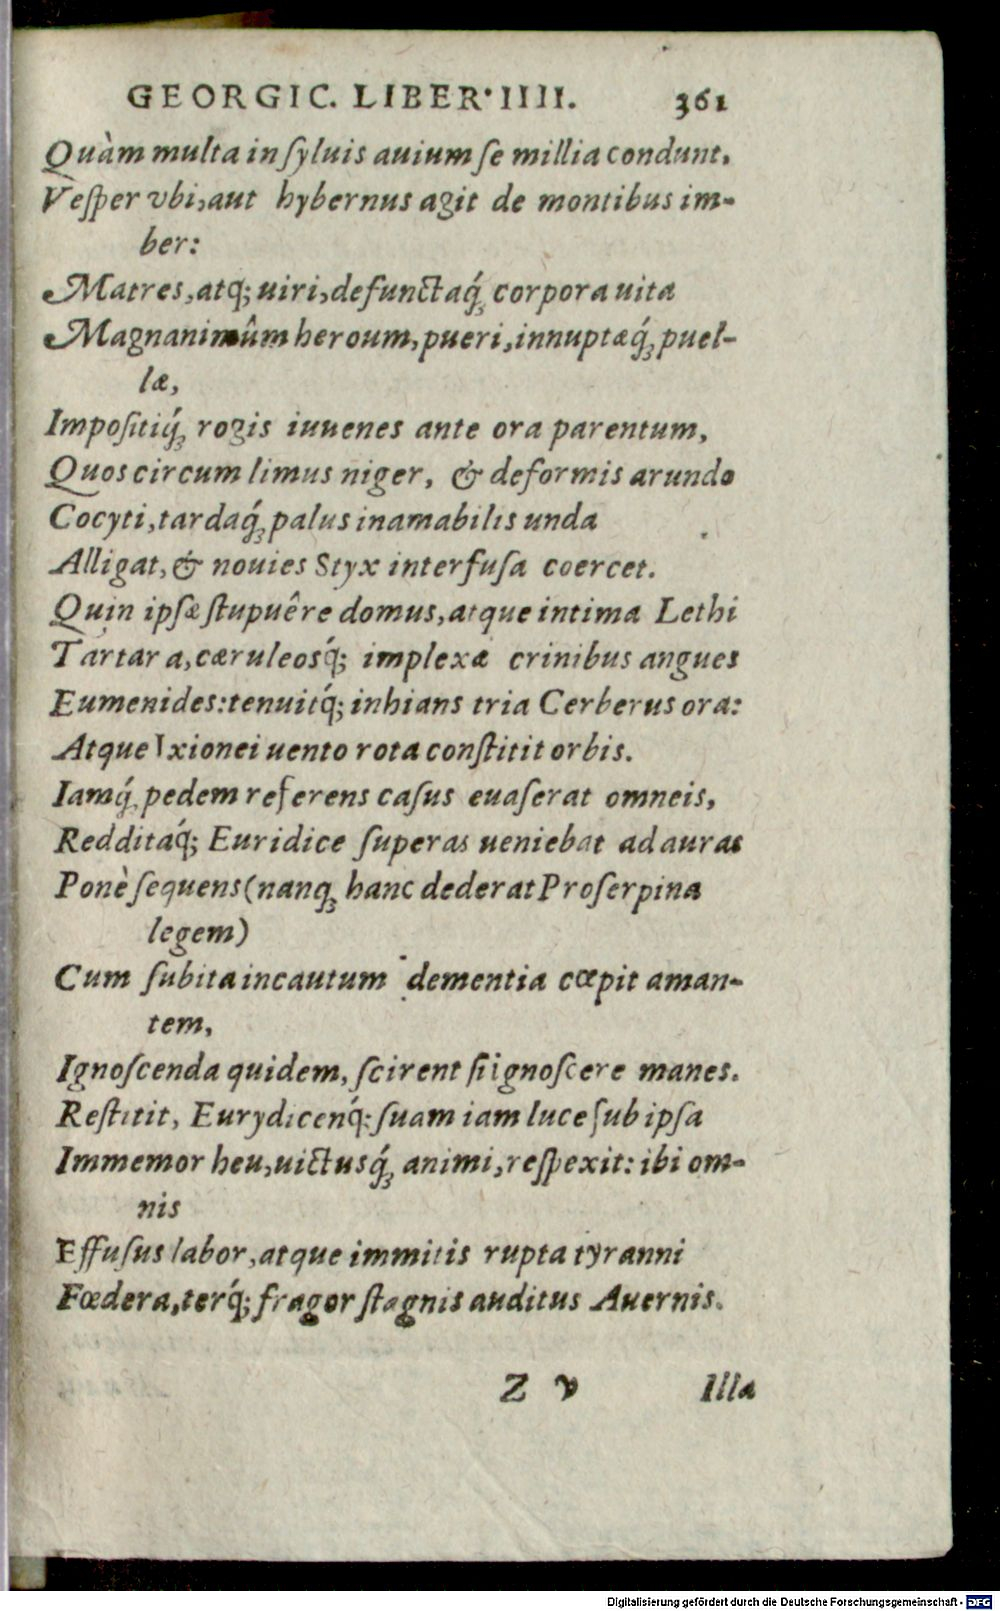 GEORGIC. LIBER IIII. 361
Quàm multa in ſyluis auium ſe millia condunt,
Veſper vbi, aut hybernus agit de montibus im-
ber:
Matres, atq; uiri, defunctaq́; corpora uita
Magnanimûm heroum, pueri, innuptæq́; puel-
læ,
Impoſitiq́; rogis iuuenes ante ora parentum,
Quos circum limus niger, & deformis arundo
Cocyti, tardaq́; palus inamabilis unda
Alligat, & nouies Styx interfuſa coercet.
Quin ipſæ ſtupuêre domus, atque intima Lethi
Tartara, cæruleosq́; implexæ crinibus angues
Eumenides: tenuitq́; inhians tria Cerberus ora:
Atque Ixionei uento rota conſtitit orbis.
Iamq́; pedem referens caſus euaſerat omneis,
Redditaq́; Euridice ſuperas ueniebat ad auras
Ponè ſequens (nanq; hanc dederat Proſerpina
legem)
Cum ſubita incautum dementia cœpit aman-
tem,
Ignoſcenda quidem, ſcirent ſi ignoſcere manes.
Reſtitit, Eurydicenq́; ſuam iam luce ſub ipſa
Immemor heu, uictusq́; animi, reſpexit: ibi om-
nis
Effuſus labor, atque immitis rupta tyranni
Fœdera, terq́; fragor ſtagnis auditus Auernis.
Z v Illa
Digitalisierung gefördert durch die Deutsche Forschungsgemeinschaft - DFG